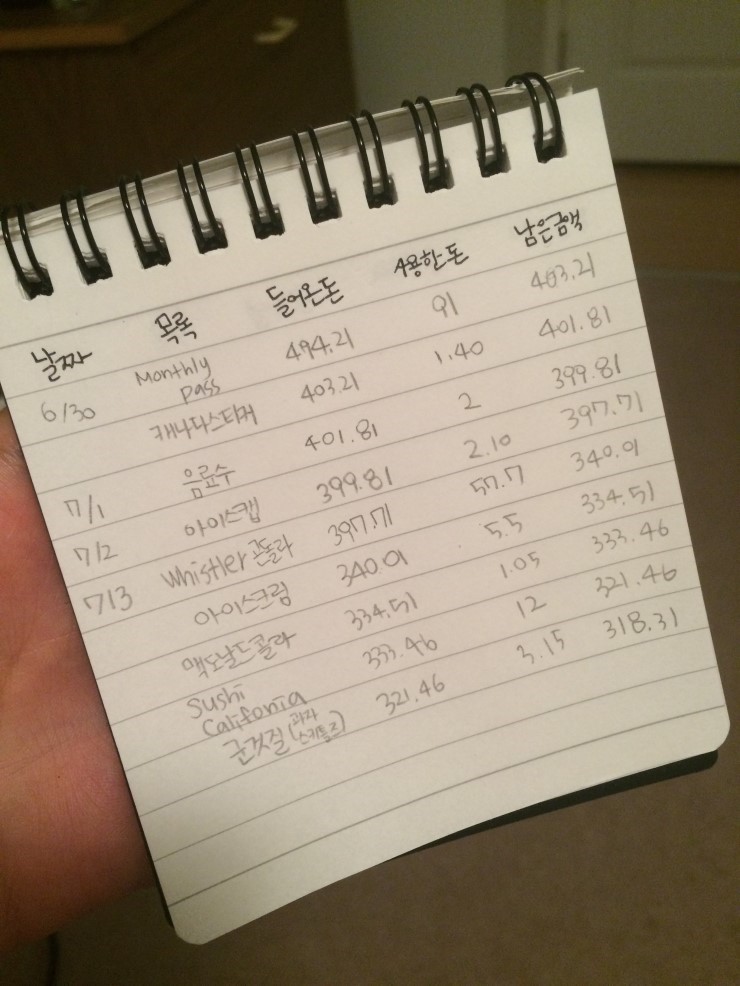 날짜 목록 들어온돈 사용한돈 남은금액
6/30 Monthly pass 494.21 91 403.21
캐나다스티커 403.21 1.40 401.81
7/1 음료수 401.81 2 399.81
7/2 아이스캡 399.81 2.10 397.71
7/3 Whistler 곤돌라 397.71 57.7 340.01
아이스크림 340.01 5.5 334.51
맥도날드콜라 334.51 1.05 333.46
Sushi Califonia 333.46 12 321.46
군것질 (과자 스키틀즈) 321.46 3.15 318.31